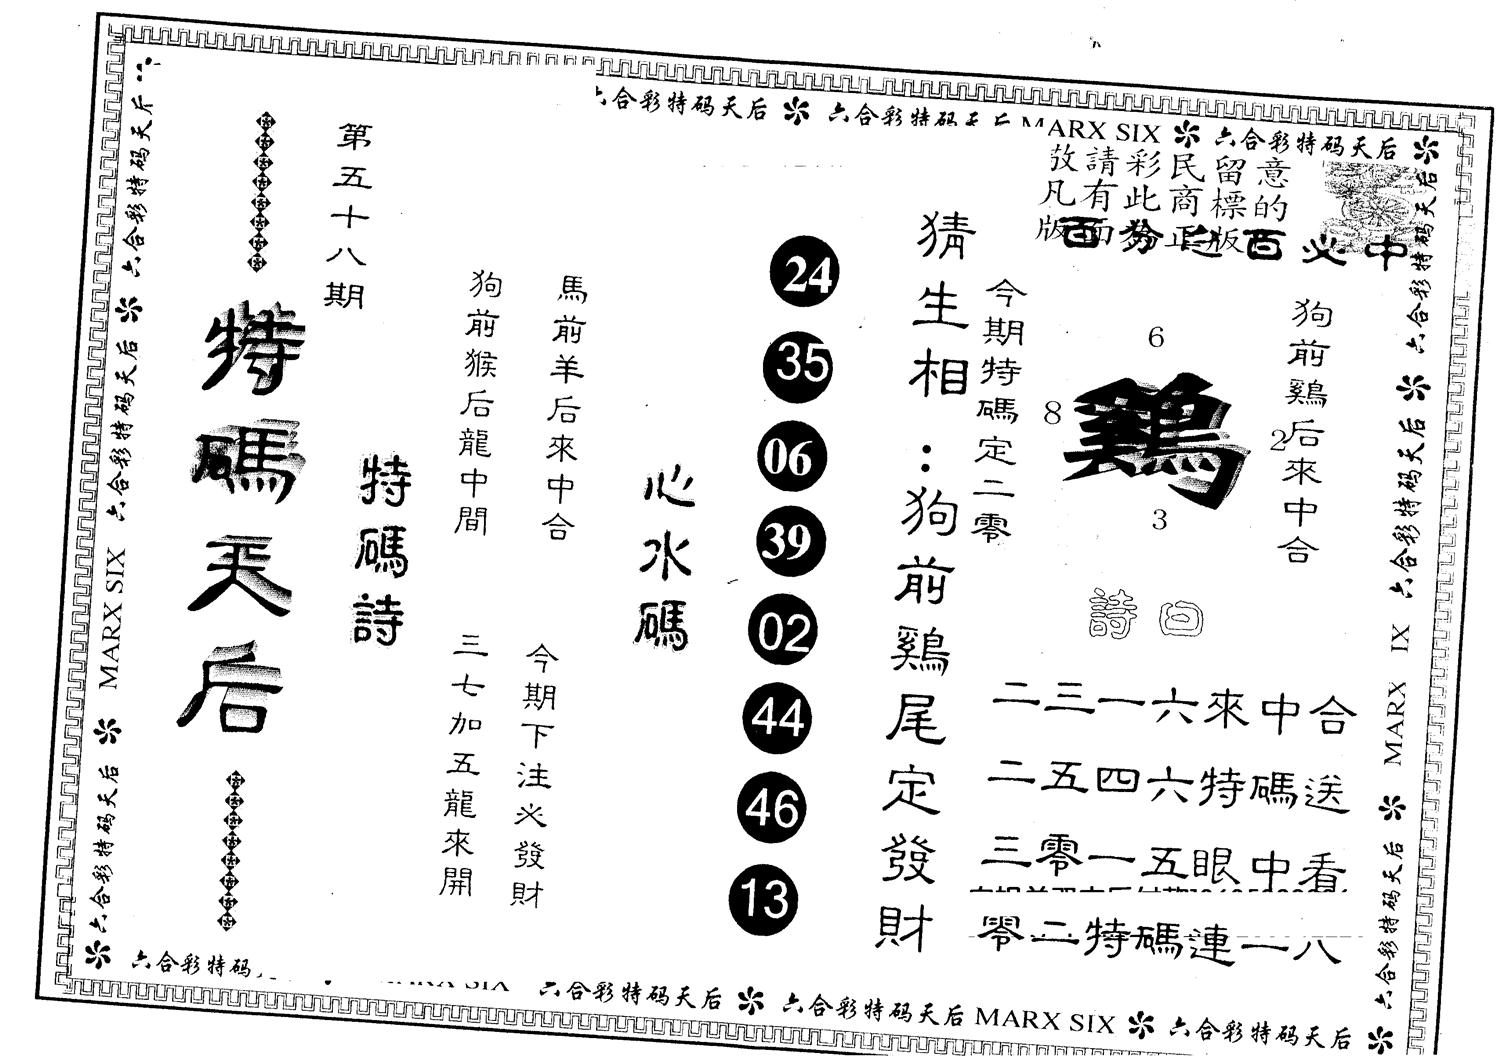 六合彩特码天后 六合彩特码天后 MARX SIX 六合彩特码天后
第五十八期
特碼天后
特碼詩
狗前猴后龍中間
馬前羊后來中合
三七加五龍來開
今期下注必發財
心水碼
24
35
06
39
02
44
46
13
猜生相:狗前雞尾定發財
敬請彩民留意
凡有此商標的
版面為正版
百分之百必中
今期特碼定二零
6
8
鷄
2
3
狗前雞后來中合
詩曰
二三一六來中合
二五四六特碼送
三零一五眼中看
零二特碼連一八
六合彩特码天后
六合彩特码天后
MARX SIX
六合彩特码天后
六合彩特码天后
六合彩特码天后
MARX IX
六合彩特码天后
六合彩特码 六合彩特码天后 六合彩特码天后 MARX SIX 六合彩特码天后